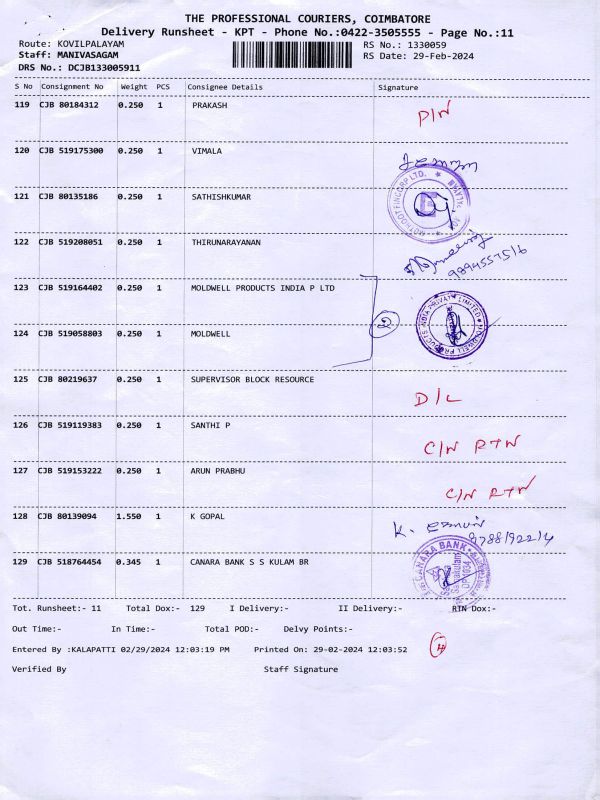 THE PROFESSIONAL COURIERS, COIMBATORE
Delivery Runsheet - KPT - Phone No.:0422-3505555 - Page No.:11
Route: KOVILPALAYAM RS No.: 1330059
Staff: MANIVASAGAM RS Date: 29-Feb-2024
DRS No.: DCJB133005911
S No Consignment No Weight PCS Consignee Details Signature
119 CJB 80184312 0.250 1 PRAKASH
120 CJB 519175300 0.250 1 VIMALA
MUTHOOT FINCORP LTD.
121 CJB 80135186 0.250 1 SATHISHKUMAR
122 CJB 519208051 0.250 1 THIRUNARAYANAN
123 CJB 519164402 0.250 1 MOLDWELL PRODUCTS INDIA P LTD
2
MOLDWELL PRODUCTS INDIA PRIVATE LIMITED
124 CJB 519058803 0.250 1 MOLDWELL
125 CJB 80219637 0.250 1 SUPERVISOR BLOCK RESOURCE D/L
126 CJB 519119383 0.250 1 SANTHI P C/N RTN
127 CJB 519153222 0.250 1 ARUN PRABHU C/N RTN
128 CJB 80139094 1.550 1 K GOPAL K.
CANARA BANK
129 CJB 518764454 0.345 1 CANARA BANK S S KULAM BR
Tot. Runsheet:- 11 Total Dox:- 129 I Delivery:- II Delivery:- RTN Dox:-
Out Time:- In Time:- Total POD:- Delvy Points:-
Entered By :KALAPATTI 02/29/2024 12:03:19 PM Printed On: 29-02-2024 12:03:52
Verified By Staff Signature